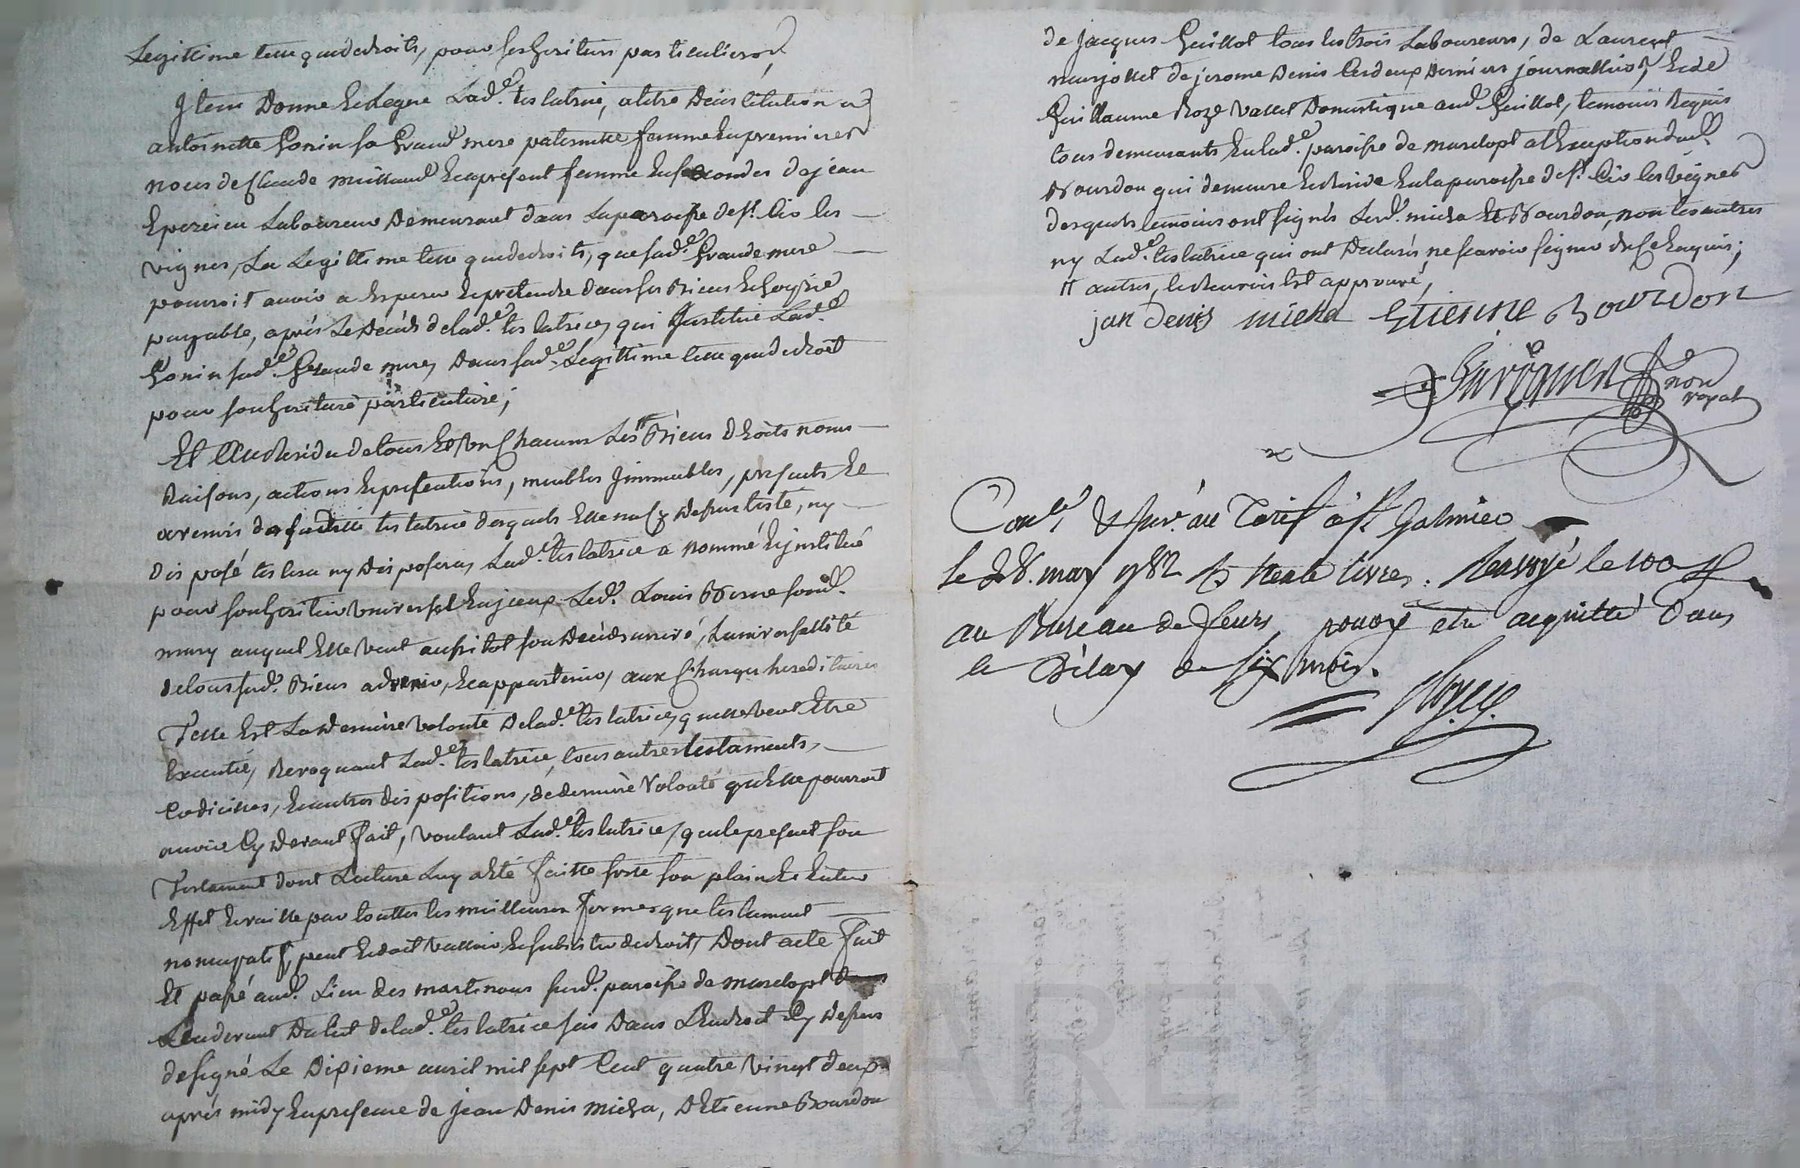 Legittime telle que de droits, pour ses heritiers particuliers,
Item Donne et Legue Lad.e testatrice, a titre D'institution a
antoinette Gonin sa Grand mere paternelle femme en premieres
noces de Claude millaud et a present femme en secondes de jean
Eperieu Laboureur Demeurant dans La paroisse de st. Cir les
vignes, La Legittime telle que de droits, que sad.e Grande mere
pourroit avoir a Esperer et pretendre dans ses Biens et hoyrie
payable, aprés Le Decéds de lad.e testatrice, qui Institue Lad.e
Gonin sad.e Grande mere, Dans sad.e Legittime telle que de droit
pour son heritiere particuliere;
Et Au Residu de tous Et Un Chacuns Ses Biens Droits noms
Raisons, actions et pretentions, meubles Immeubles, presents Et
avenirs de laditte testatrice desquels Elle na Cy Dessus testé, ny
Disposé testera ny Disposera, Lad.e testatrice a nommé et institué
pour son heritier universel Led. Louis Berne sond.
mary auquel Elle veut aussitot son Decéds arrivé, L'universallité
de tous sesd. Biens advenir, et appartenir, aux Charges hereditaires
Telle Est La Derniere Volonté De lad.e testatrice, quelle veut Etre
Executée, Revoquant Lad.e testatrice, tous autres testaments,
Codicilles, et autres dispositions, de derniere Volonté quElle pourroit
avoir Cy Devant fait, voulant Lad.e testatrice, que le present son
Testament dont Lecture Luy a Eté faitte sorte son plain et Entier
Effet et vaille par touttes les meilleures formes que testament
noncupatif, peut et doit valloir et subsister de droit, Dont acte fait
Et passé aud. Lieu des martinous susd. paroisse de marclopt
Au devant Du lit de lad.e testatrice sis Dans L'Endroit Cy Dessus
designé Le Dixieme avril mil sept Cent quatre vingt deux
aprés midy En presence de jean Denis micha, D'Etienne Bourdon
de jacques Guillot tous les trois Laboureurs, de Laurent
marjollet de jerome Denis Ces deux Derniers journalliers, Et de
Guillaume Roze Vallet Domestique aud. Guillot, temoins Requis
tous demeurants En lad.e paroisse de marclopt a L'Exception dud.
Bourdon qui demeure Et Reside En la paroisse de st. Cir les vignes
desquels temoins ont signés Lesd. micha Et Bourdon, non les autres
ny Lad.e testatrice qui ont Declarés ne scavoir signer de Ce Enquis;
autres, approuvé,
jan denis micha Etienne Bourdon
non
royal
Con.lé au Tarif à st Galmier
le 28. may 1782 trente livres. Renvoyé le 100.e
au Bureau de feurs, pour y etre acquitté Dans
le Delay de six mois.